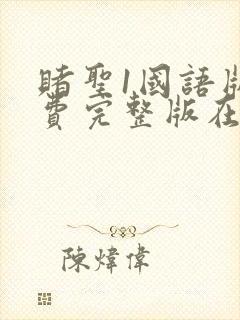 賭聖1國語版
費完整版在
陳煒偉